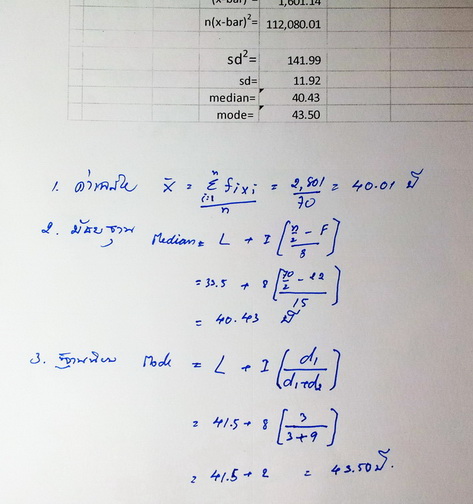 (x-bar)²= 1,601.14
n(x-bar)²= 112,080.01
sd²= 141.99
sd= 11.92
median= 40.43
mode= 43.50
1. ค่าเฉลี่ย x̄ = Σⁿᵢ₌₁ fixi / n = 2,801 / 70 = 40.01 ปี
2. มัธยฐาน Median = L + I [(n/2 - F) / f]
= 33.5 + 8 [(70/2 - 22) / 15]
= 40.43 ปี
3. ฐานนิยม Mode = L + I (d₁ / (d₁+d₂))
= 41.5 + 8 [3 / (3+9)]
= 41.5 + 2 = 43.50 ปี.